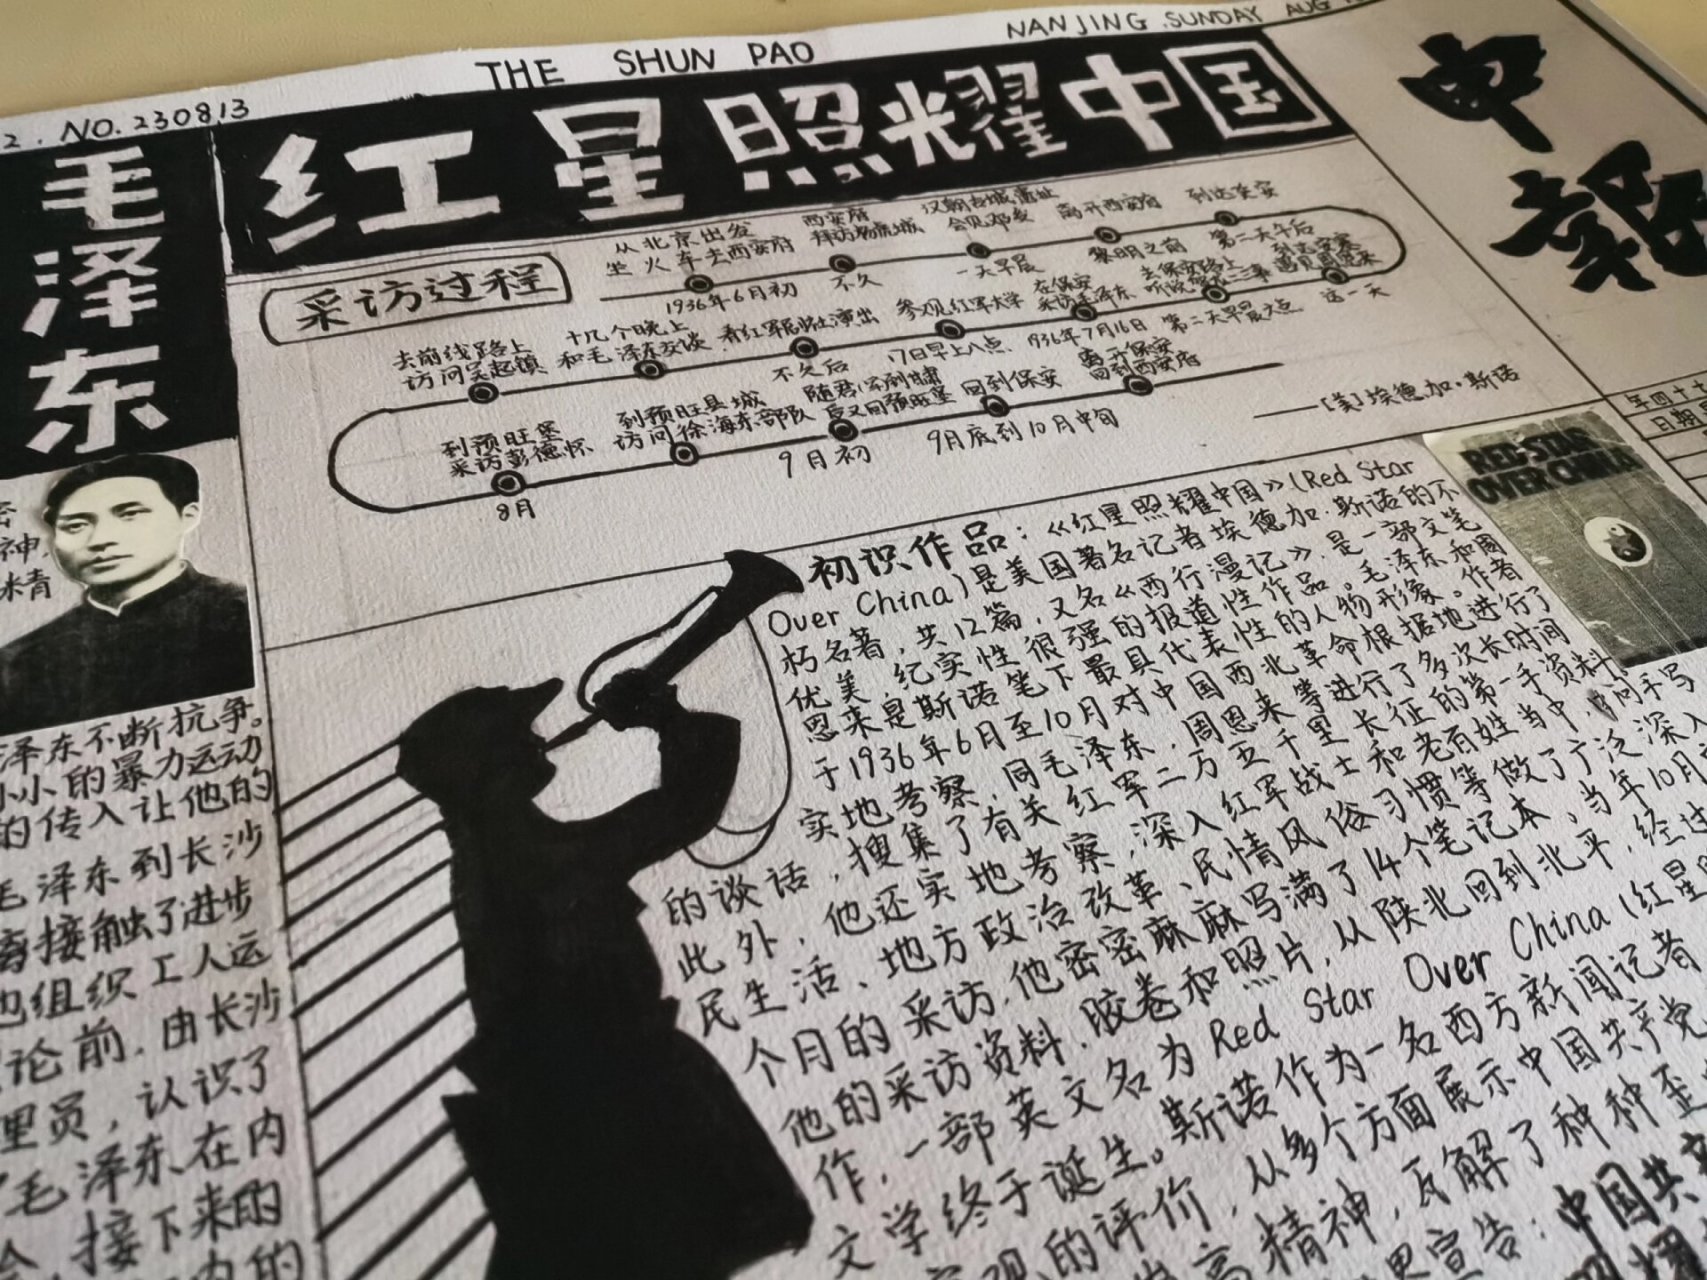 THE SHUN PAO
NANJING.SUNDAY AUG
2. NO. 230813
申报
红星照耀中国
毛泽东
采访过程
从北京出发
坐火车去西安府
1936年6月初
西安府
不久
汉朝古城遗址
会见邓发
一天早晨
离开西安府
黎明之前
到达延安
第二天午后
这一天
第二天早晨六点
在保安
采访毛泽东
1936年7月16日
参观红军大学
17日早上八点
看红军剧社演出
不久后
十几个晚上
和毛泽东交谈
去前线路上
访问吴起镇
到预旺堡
采访彭德怀
8月
到预旺县城
访问徐海东部队
后又回预旺堡
9月初
回到保安
9月底到10月中旬
离开保安
回到西安府
——[美]埃德加·斯诺
RED STAR
OVER CHINA
日期
神
初识作品：《红星照耀中国》(Red Star
Over China)是美国著名记者埃德加·斯诺的不
朽名著，共12篇，又名《西行漫记》，是一部文笔
优美，纪实性很强的报道性作品。毛泽东和周
恩来是斯诺笔下最具代表性的人物形象。作者
于1936年6月至10月对中国西北革命根据地进行了
实地考察，同毛泽东，周恩来等进行了多次长时间
的谈话，搜集了有关红军二万五千里长征的第一手资料
此外，他还实地考察，深入红军战士和老百姓当中，问手写
民生活、地方政治改革、民情风俗习惯等做了广泛深入
个月的采访，他密密麻麻写满了14个笔记本，当年10月
他的采访资料，胶卷和照片，从陕北回到北平，经过
作，一部英文名为Red Star Over China(红星
文学终于诞生。斯诺作为一名西方新闻记者
观的评价，从多个方面展示中国共产党
高精神，瓦解了种种歪
宣告：中国共
泽东不断抗争。
小小的暴力运动
的传入让他的
毛泽东到长沙
离接触了进步
也组织工人运
论前，由长沙
理员，认识了
毛泽东在内
接下来的
内的